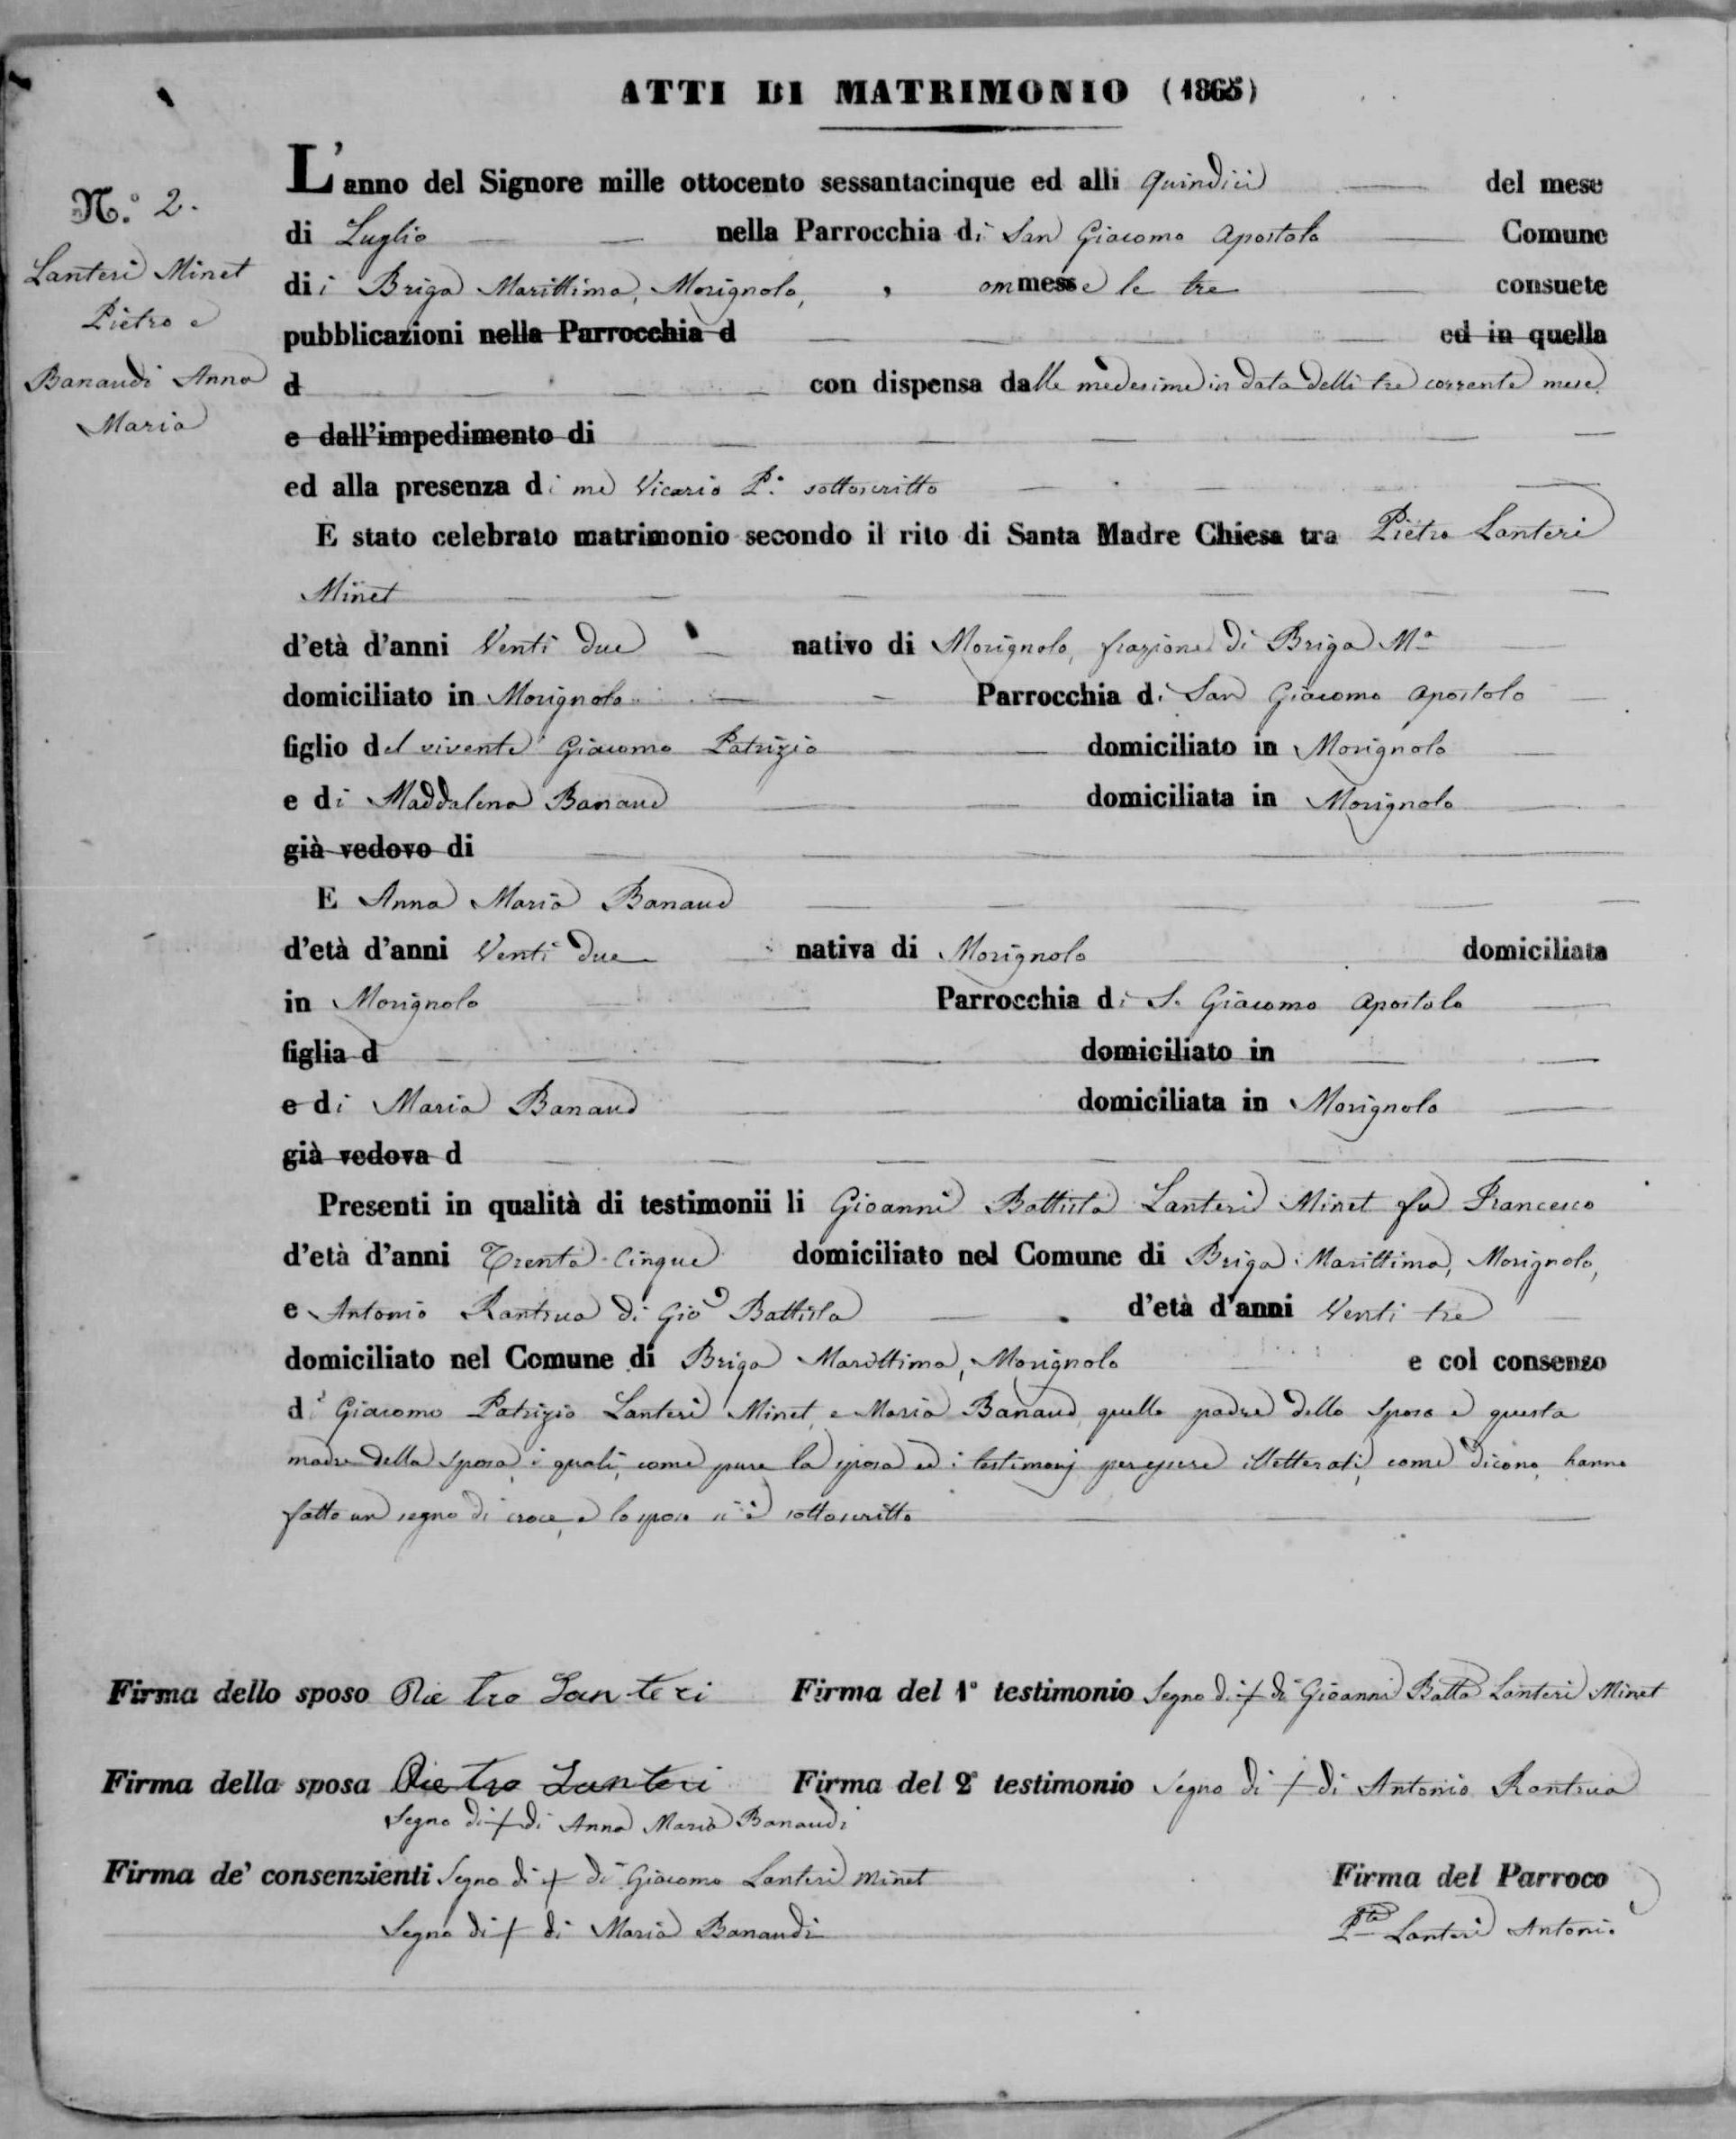 ATTI DI MATRIMONIO (1865)
N.° 2.
Lanteri Minet
Pietro e
Banaudi Anna
Maria
L'anno del Signore mille ottocento sessantacinque ed alli quindici del mese
di Luglio nella Parrocchia di San Giacomo Apostolo Comune
di Briga Marittima, Morignolo, ommesse le tre consuete
pubblicazioni nella Parrocchia d ed in quella
d con dispensa dalle medesime in data delli tre corrente mese
e dall'impedimento di
ed alla presenza di me Vicario P. sottoscritto
E stato celebrato matrimonio secondo il rito di Santa Madre Chiesa tra Pietro Lanteri
Minet
d'età d'anni Venti due nativo di Morignolo, frazione di Briga Mª
domiciliato in Morignolo Parrocchia di San Giacomo Apostolo
figlio del vivente Giacomo Patrizio domiciliato in Morignolo
e di Maddalena Banaud domiciliata in Morignolo
già vedovo di
E Anna Maria Banaud
d'età d'anni Venti due nativa di Morignolo domiciliata
in Morignolo Parrocchia di S. Giacomo Apostolo
figlia d domiciliato in
e di Maria Banaud domiciliata in Morignolo
già vedova d
Presenti in qualità di testimonii li Gioanni Battista Lanteri Minet fu Francesco
d'età d'anni Trenta-Cinque domiciliato nel Comune di Briga Marittima, Morignolo,
e Antonio Rantrua di Gio Battista d'età d'anni Venti tre
domiciliato nel Comune di Briga Marittima, Morignolo e col consenso
di Giacomo Patrizio Lanteri Minet, e Maria Banaud, quello padre dello sposo e questa
madre della sposa, i quali, come pure la sposa ed i testimonj per essere illetterati, come dicono, hanno
fatto un segno di croce, e lo sposo si è sottoscritto
Firma dello sposo Pietro Lanteri Firma del 1° testimonio Segno di + di Gioanni Batta Lanteri Minet
Firma della sposa Pietro Lanteri Firma del 2° testimonio Segno di + di Antonio Rantrua
Segno di + di Anna Maria Banaudi
Firma de' consenzienti Segno di + di Giacomo Lanteri Minet Firma del Parroco
Segno di + di Maria Banaudi Pte Lanteri Antonio